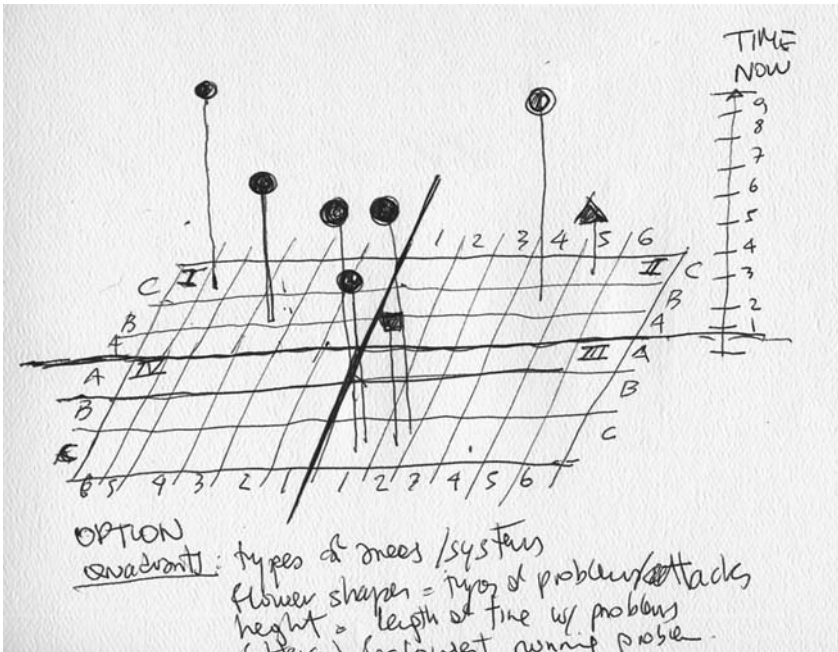 TIME
NOW
9
8
7
6
5
4
3
2
1
1 2 3 4 5 6
I II
C C
B B
4 4
A IV III A
B B
C C
6 5 4 3 2 1 1 2 3 4 5 6
OPTION
quadrants: types of areas / systems
flower shapes = types of problems/attacks
height = length of time w/ problems
running problem.